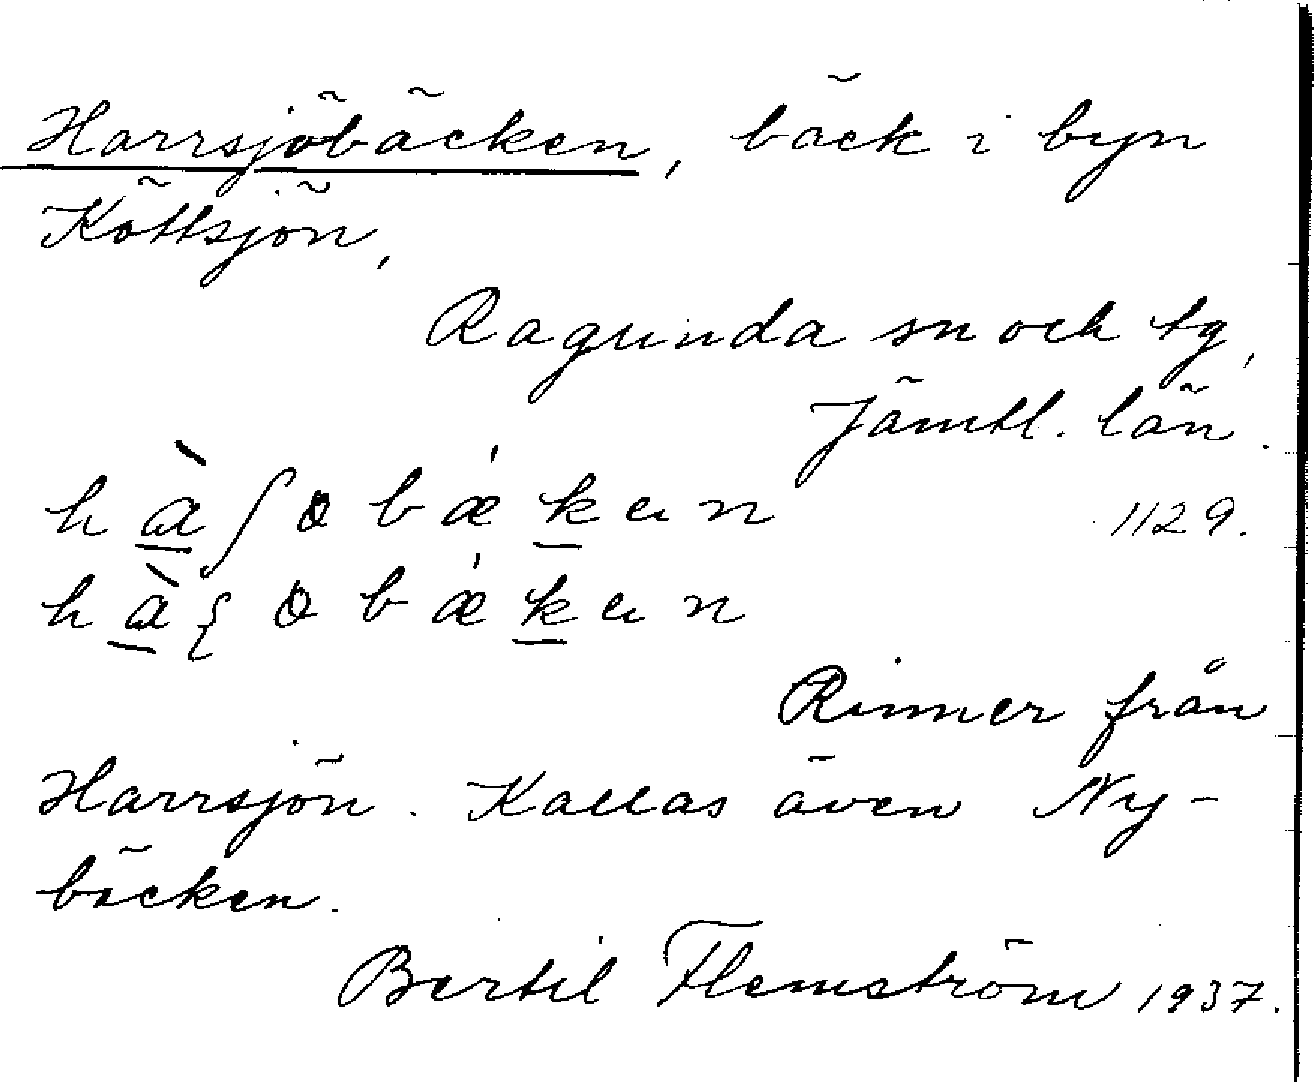 Harrsjöbäcken, bäck i byn
Köttsjön,
Ragunda sn och tg,
Jämtl. län.
1129.
Rinner från
Harrsjön. Kallas även Ny-
bäcken.
Bertil Flemström 1937.